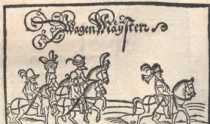 Wagen Maÿster